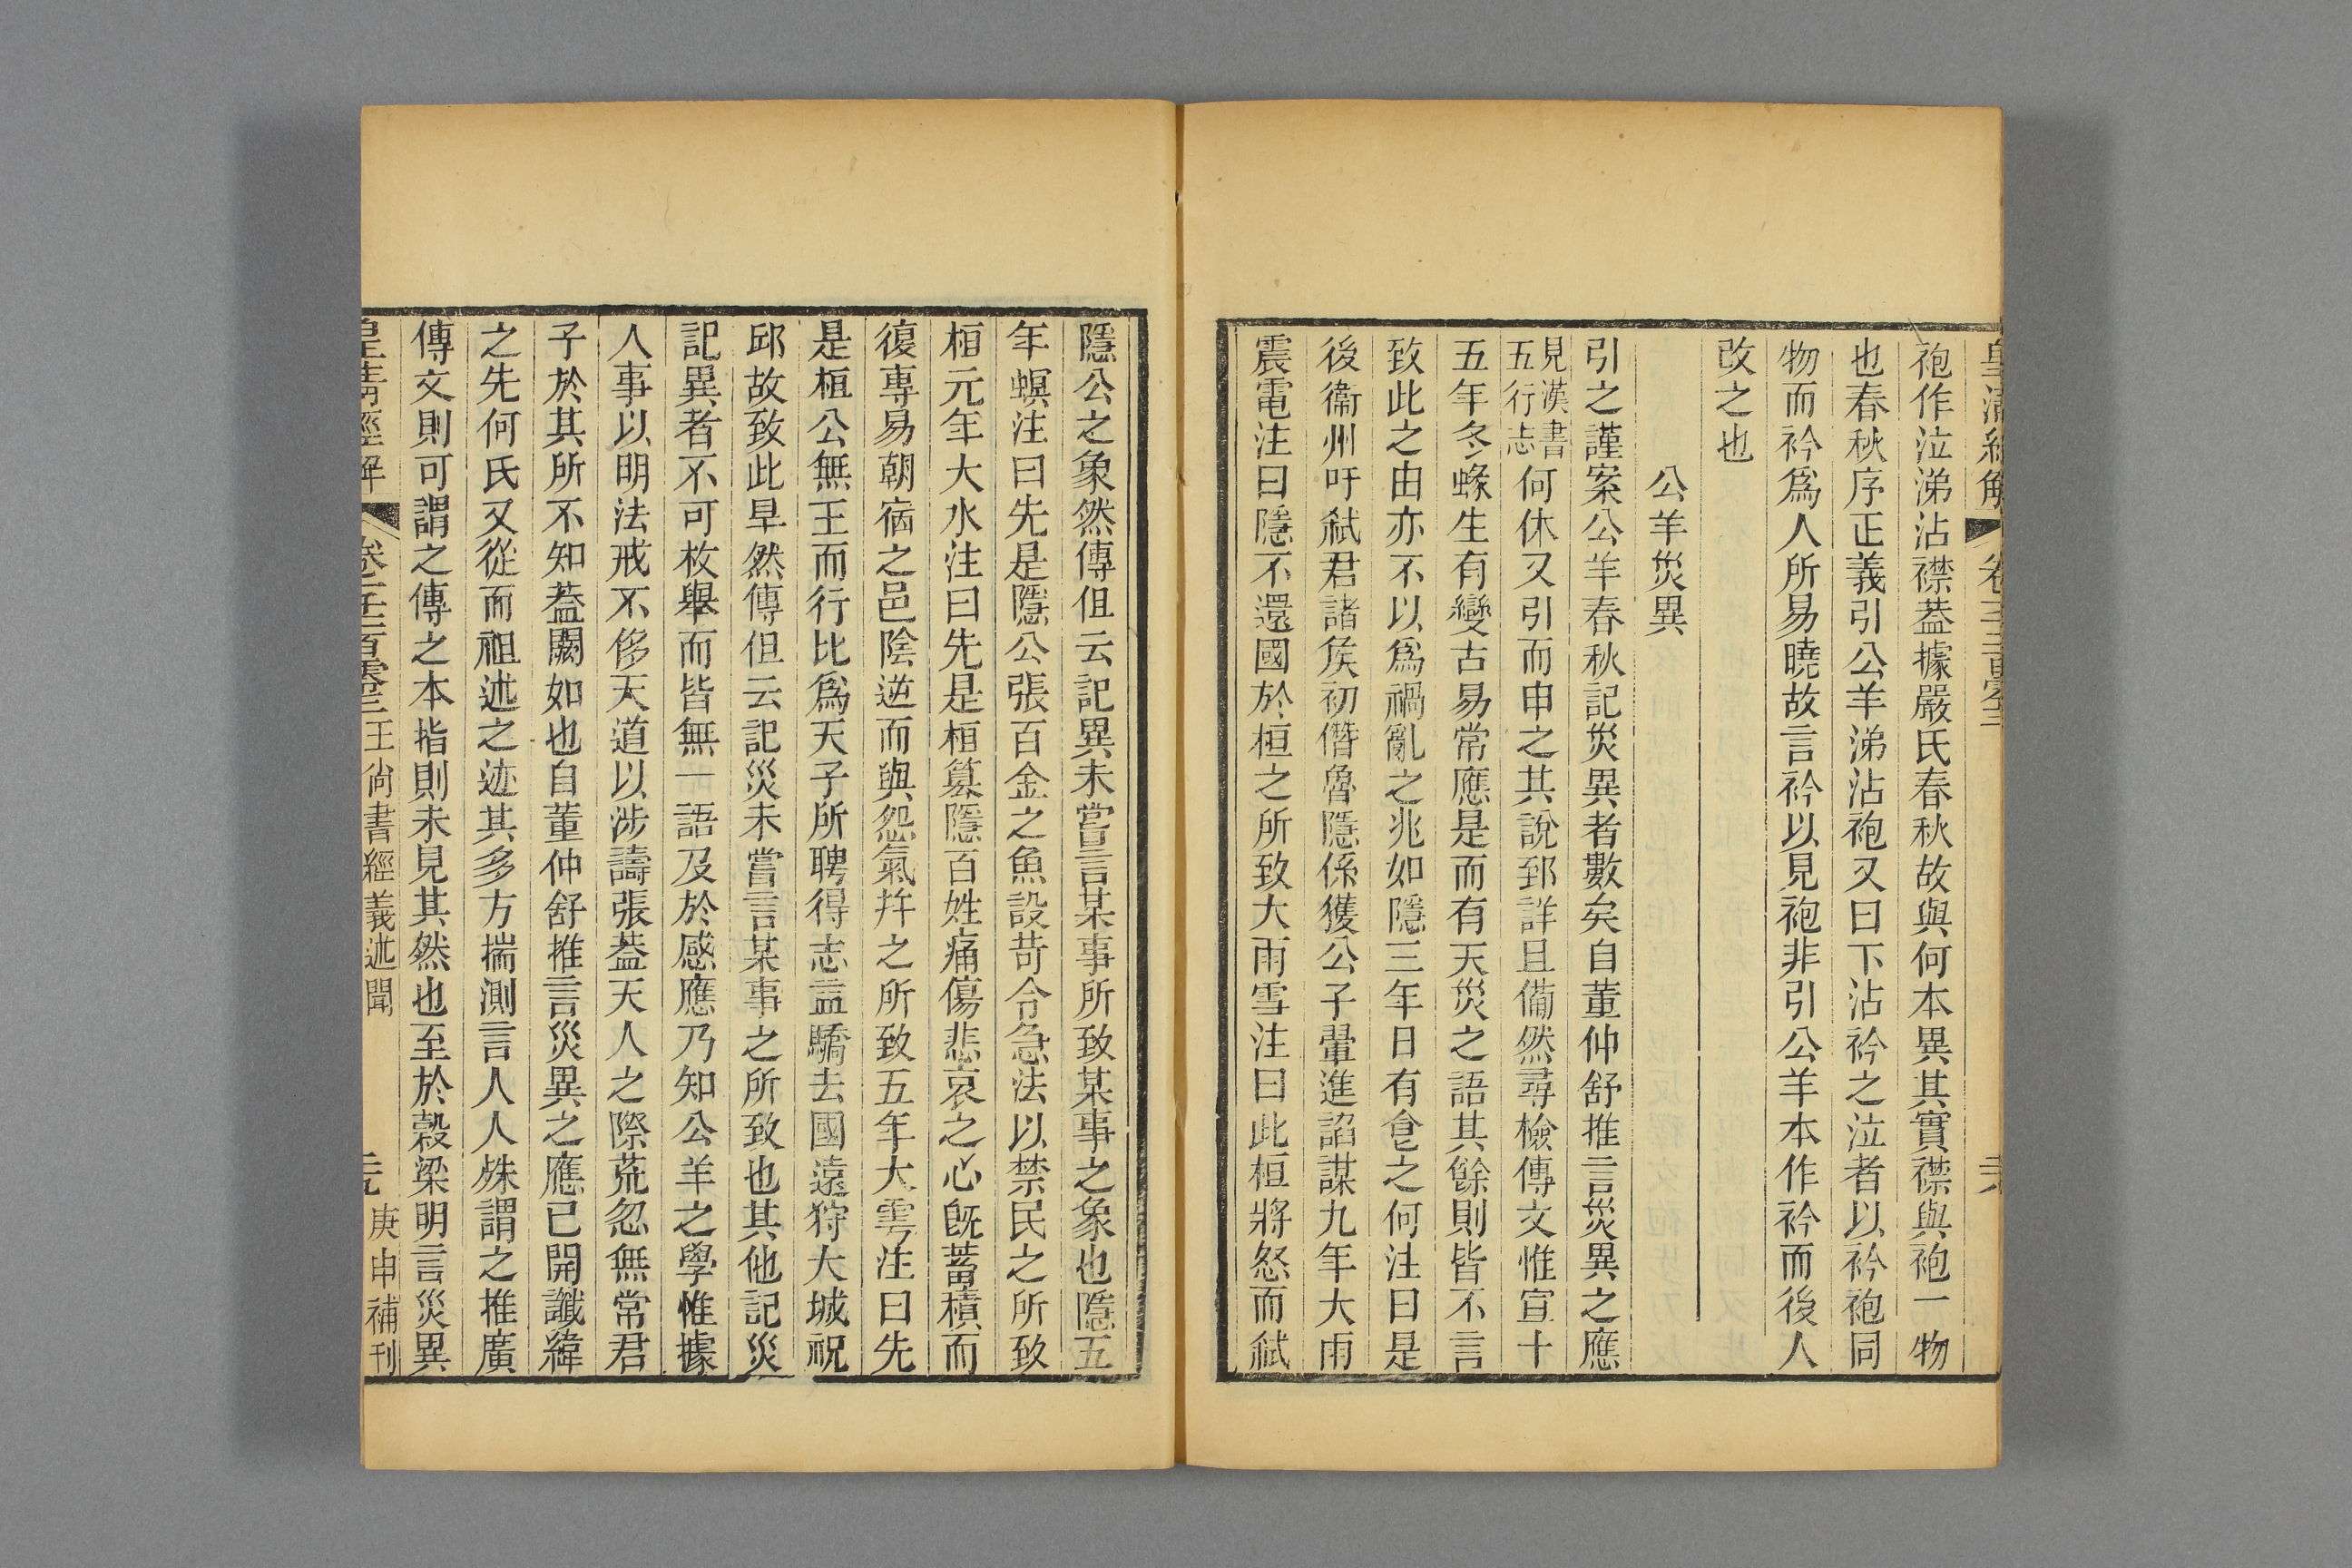 皇清經解 卷一千二百零三 二六
袍作泣涕沾襟葢據嚴氏春秋故與何本異其實襟與袍一物
也春秋序正義引公羊涕沾袍又曰下沾衿之泣者以衿袍同
物而衿爲人所易曉故言衿以見袍非引公羊本作衿而後人
改之也
公羊災異
引之謹案公羊春秋記災異者數矣自董仲舒推言災異之應
見漢書五行志何休又引而申之其說郅詳且備然尋檢傳文惟宣十
五年冬蝝生有變古易常應是而有天災之語其餘則皆不言
致此之由亦不以爲禍亂之兆如隱三年日有食之何注曰是
後衞州吁弒君諸矦初僭魯隱係獲公子翬進諂謀九年大雨
震電注曰隱不還國於桓之所致大雨雪注曰此桓將怒而弒
隱公之象然傳但云記異未嘗言某事所致某事之象也隱五
年螟注曰先是隱公張百金之魚設苛令急法以禁民之所致
桓元年大水注曰先是桓簒隱百姓痛傷悲哀之心旣蓄積而
復專易朝宿之邑陰逆而與怨氣幷之所致五年大雩注曰先
是桓公無王而行比爲天子所聘得志益驕去國遠狩大城祝
邱故致此旱然傳但云記災未嘗言某事之所致也其他記災
記異者不可枚舉而皆無一語及於感應乃知公羊之學惟據
人事以明法戒不侈天道以涉譸張葢天人之際荒忽無常君
子於其所不知葢闕如也自董仲舒推言災異之應已開讖緯
之先何氏又從而祖述之迹其多方揣測言人人殊謂之推廣
傳文則可謂之傳之本指則未見其然也至於榖梁明言災異
皇淸經解 卷一千二百零三 王尙書經義述聞 二九 庚申補刊